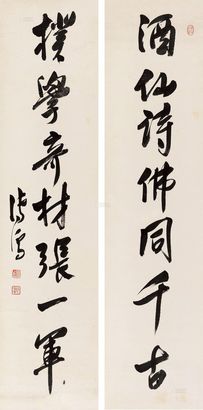 酒仙詩佛同千古
樸學奇材張一軍
溥儒